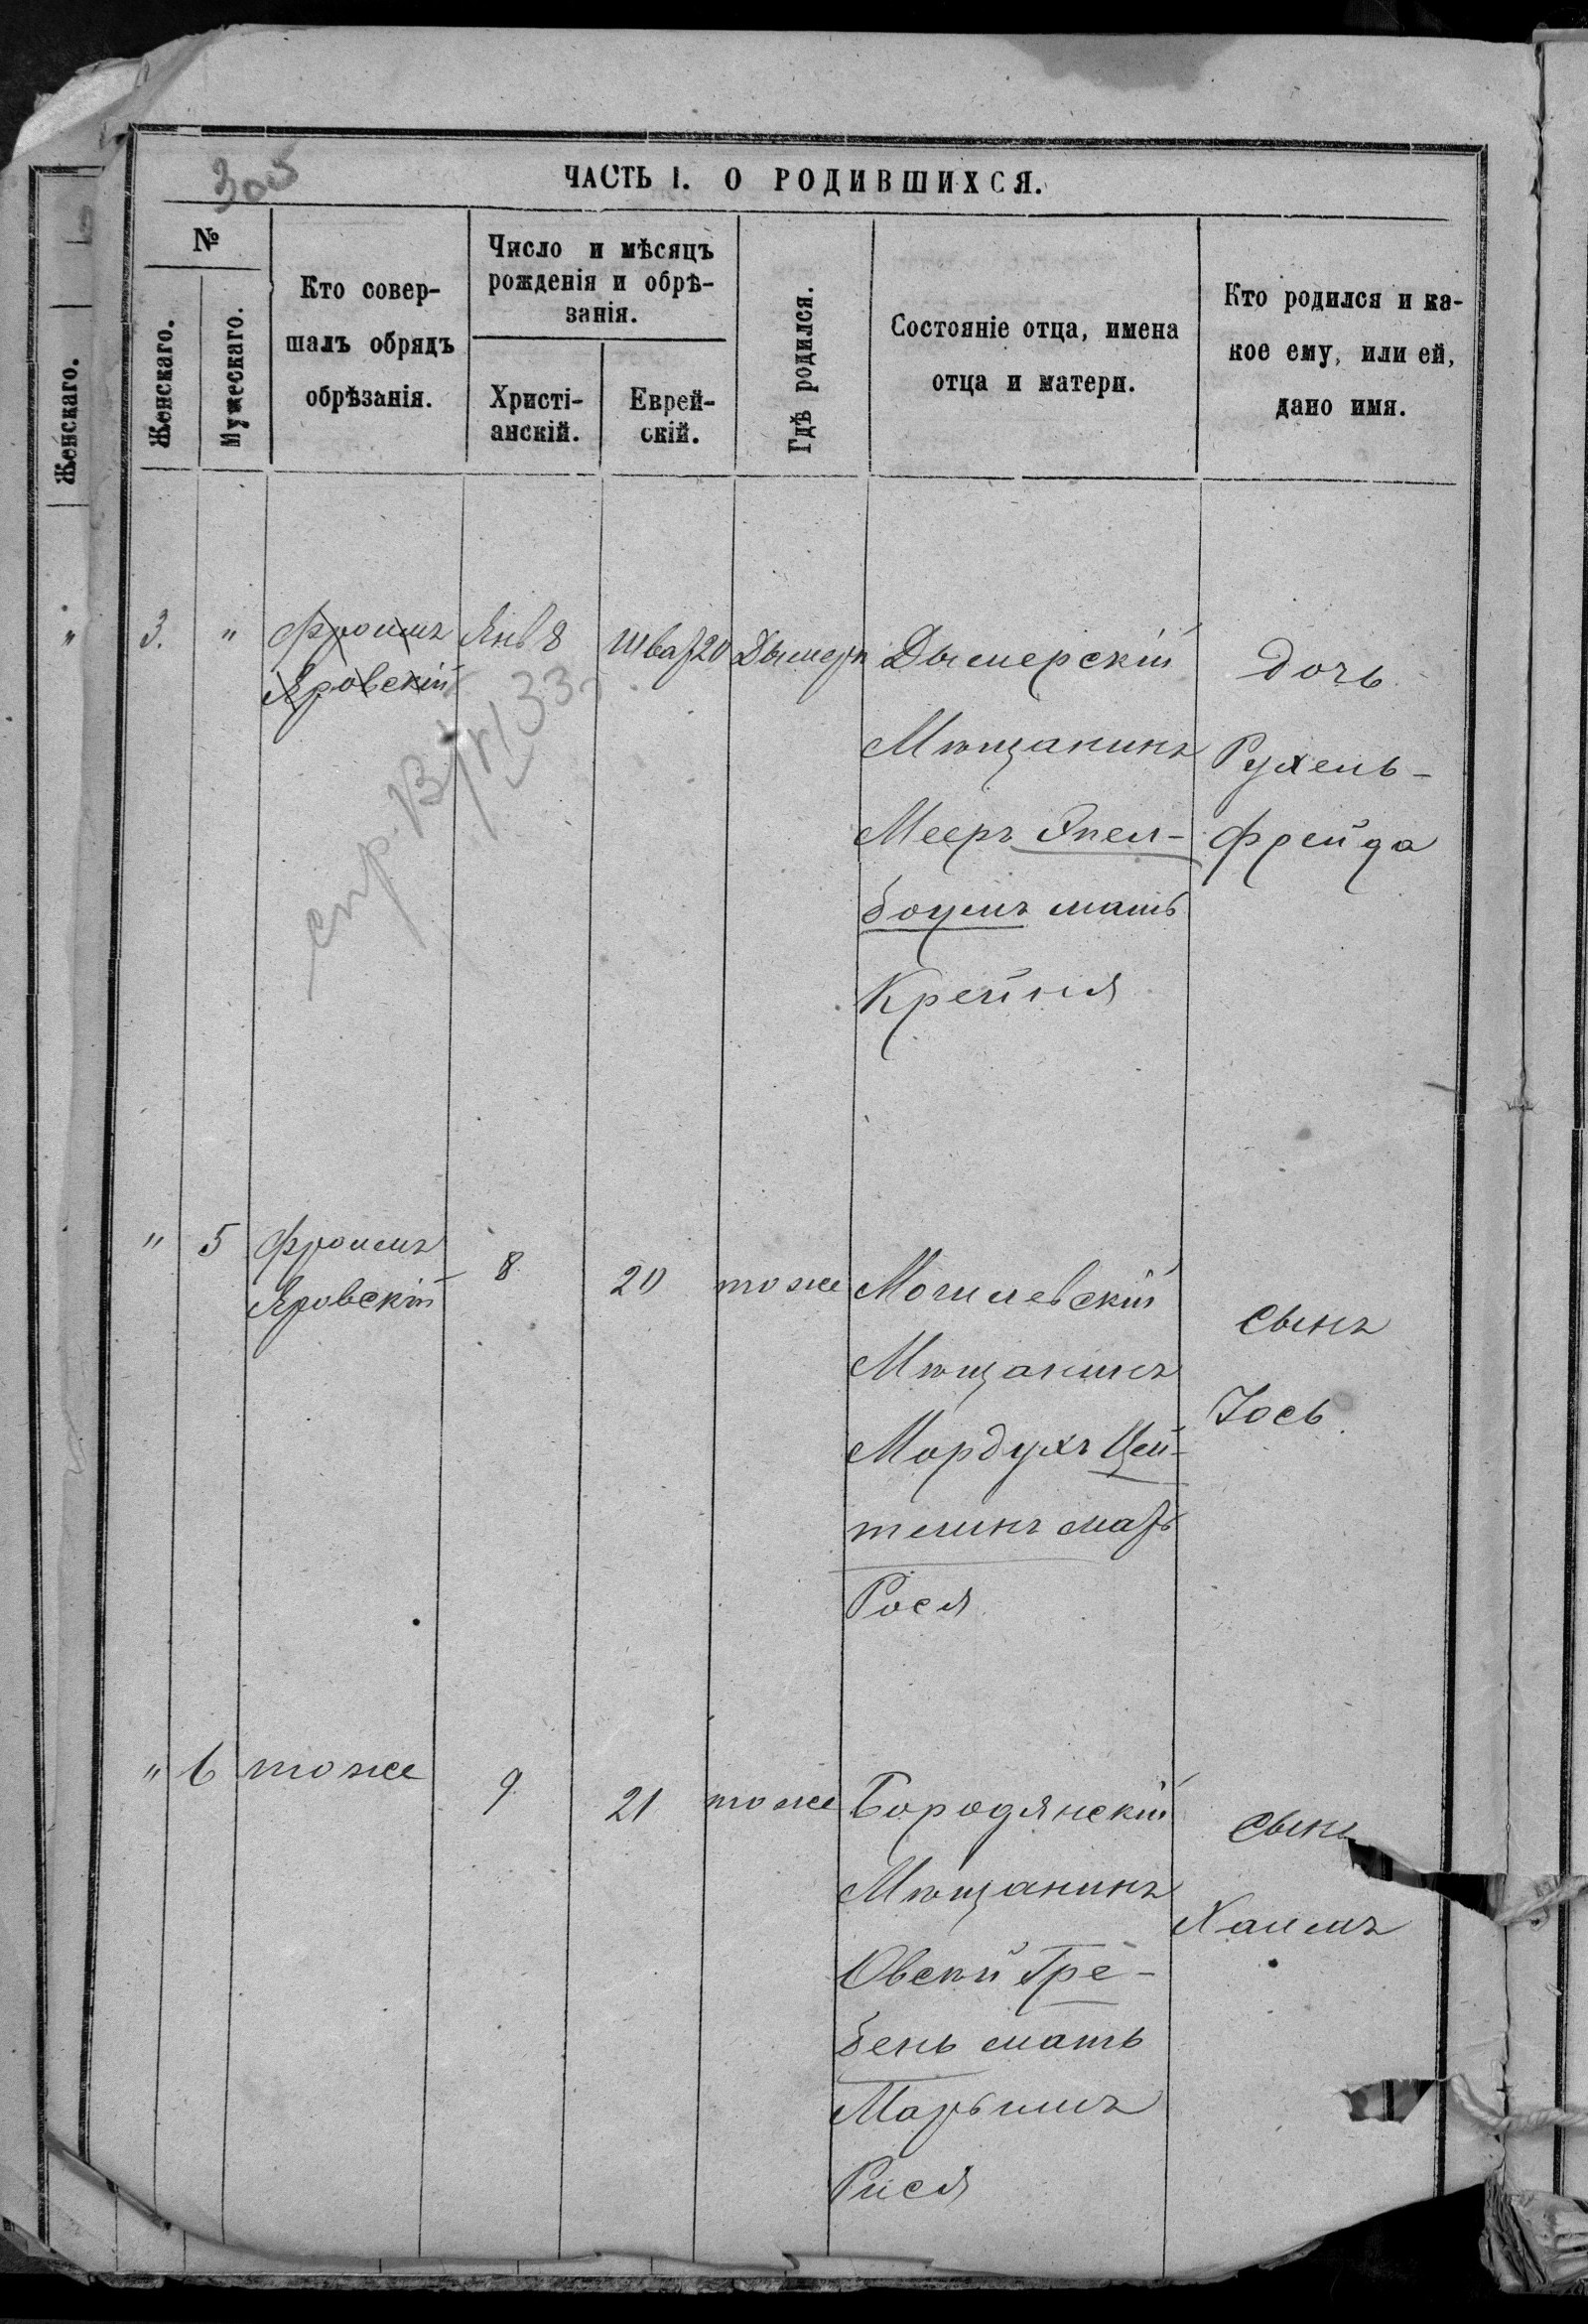 305
ЧАСТЬ I. О РОДИВШИХСЯ.
№
Женскаго.
Женскаго.
Мужескаго.
Кто совер-
шалъ обрядъ
обрѣзанія.
Число и мѣсяцъ
рожденія и обрѣ-
занія.
Христі-
анскій.
Еврей-
скій.
Гдѣ родился.
Состояніе отца, имена
отца и матери.
Кто родился и ка-
кое ему, или ей,
дано имя.
"
3. " Фроимъ Янв 8 Шват 20 Дымеръ Дымерскій
Яровскій
Мѣщанинъ
Мееръ Эпел-
боумъ мать
Крейня
дочь
Рухель-
Фрейда
спр. 33
" 5 Фроимъ
Яровскій
8 20 тоже Могилевскій
Мѣщанинъ
Мордухъ Цей-
тлинъ мать
Рося
сынъ
Іось
" 6 тоже 9 21 тоже Бородянскій
Мѣщанинъ
Овсей Гре-
бень мать
Марьимъ
Рися
сынъ
Хаимъ